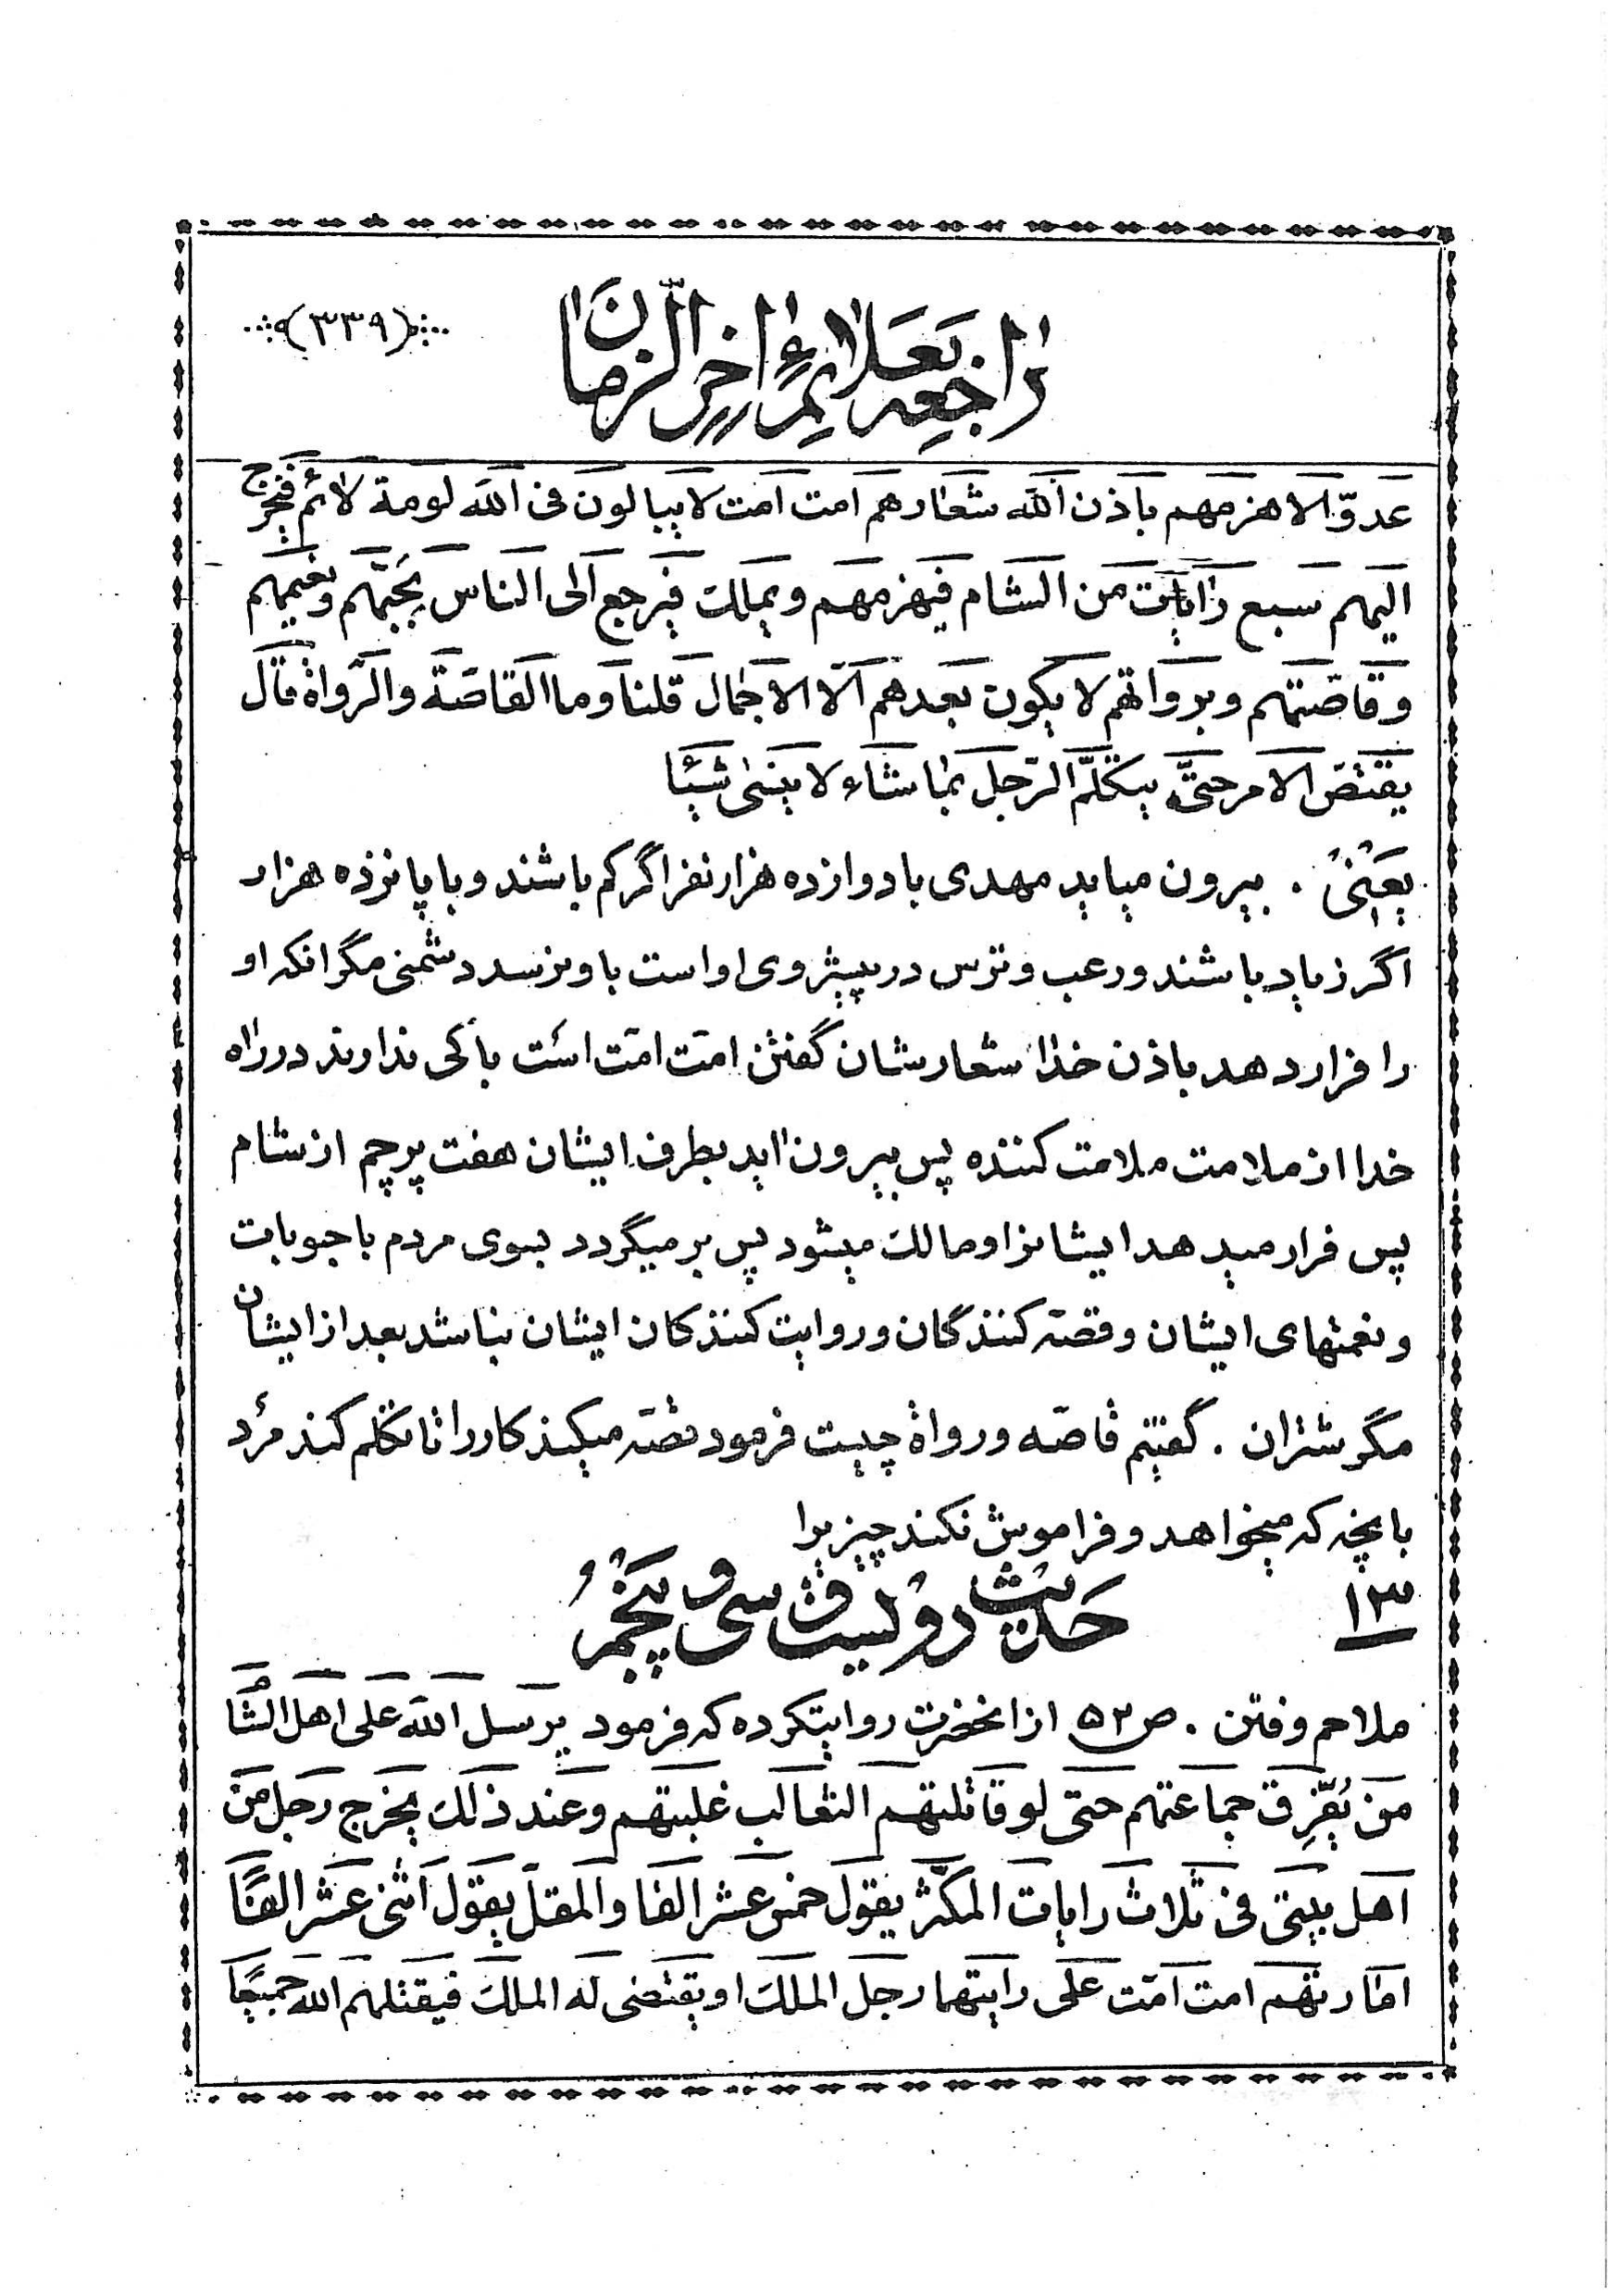 (۳۳۹)
راجعه بعلائم آخر الزمان
عدوّ الا هزمهم باذن الله شعارهم امت امت لا یبالون فی الله لومة لائم فیخرج
الیهم سبع رایات من الشام فیهزمهم و یملک فیرجع الی الناس محبّتهم و نعیمهم
و قاصّتهم و برواتهم لا یکون بعدهم الّا الاجمال قلنا و ما القاصّة و الرّواة قال
یقتصّ الامر حتّی یتکلّم الرّجل بما شاء لا ینسی شیئا
یعنی . بیرون میاید مهدی با دوازده هزار نفر اگر کم باشند و با پانزده هزار
اگر زیاد باشند و رعب و ترس در پیشروی او است باو نرسد دشمنی مگر انکه او
را فرار دهد باذن خدا شعارشان گفتن امت امت است باکی ندارند در راه
خدا از ملامت ملامت کننده پس بیرون اید بطرف ایشان هفت پرچم از شام
پس فرار میدهد ایشانرا و مالک میشود پس بر میگردد بسوی مردم با حبوبات
و نعمتهای ایشان و قصه کنندگان و روایت کنندکان ایشان نباشد بعد از ایشان
مگر شتران . گفتیم قاصّه و رواة چیست فرمود قصّه میکند کار را تا تکلم کند مرد
بانچه که میخواهد و فراموش نکند چیزیرا
۱۳ حدیث دویست و سی و پنجم
ملاحم و فتن . ص ۵۲ از انحضرت روایتکرده که فرمود یرسل الله علی اهل الشام
من یُفَرِّق جماعتهم حتی لو قاتلتهم الثعالب غلبتهم و عند ذلک یخرج رجل من
اهل بیتی فی ثلاث رایات المکثّر یقول خمس عشر الفا و المقلّ یقول اثنی عشر الفًا
امارتهم امت امت علی رایتها رجل الملک او یقتضی له الملک فیقتلهم الله جمیعًا